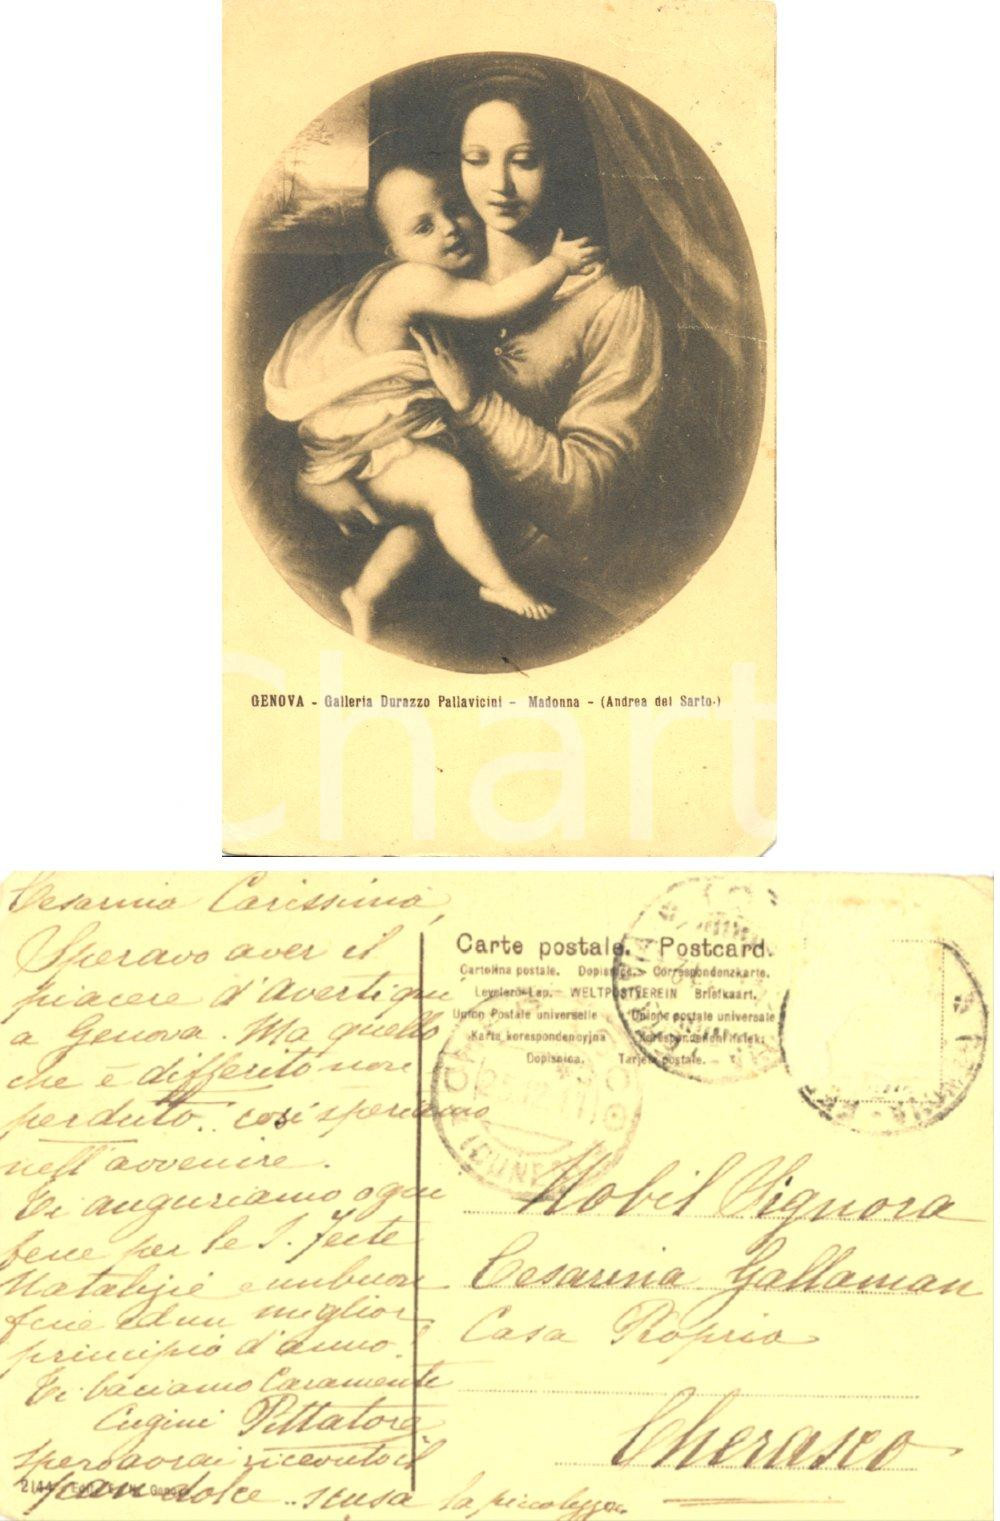 GENOVA - Galleria Durazzo Pallavicini - Madonna - (Andrea del Sarto.)
Chart
Cesarina Carissima,
Speravo aver il
piacere d'Averti qui
a Genova. Ma quello
che è differito non
perduto. così speriamo
nell'avvenire.
Ti auguriamo ogni
bene per le S. Feste
Natalizie e un buon
fine ed un miglior
principio d'anno!
Ti baciamo Caramente
Cugini Pittatore
spero avrai ricevuto il
pan dolce .. scusa la piccolezza
2144
Carte postale. Postcard.
Cartolina postale. Dopisnice. Correspondenzkarte.
Levelező-Lap. WELTPOSTVEREIN Briefkaart.
Union Postale universelle Unione postale universale
Karta korespondencyjna
Dopisnica. Tarjeta postale.
(CUNEO)
Nobil Signora
Cesarina Gallaman
Casa Propria
Cherasco